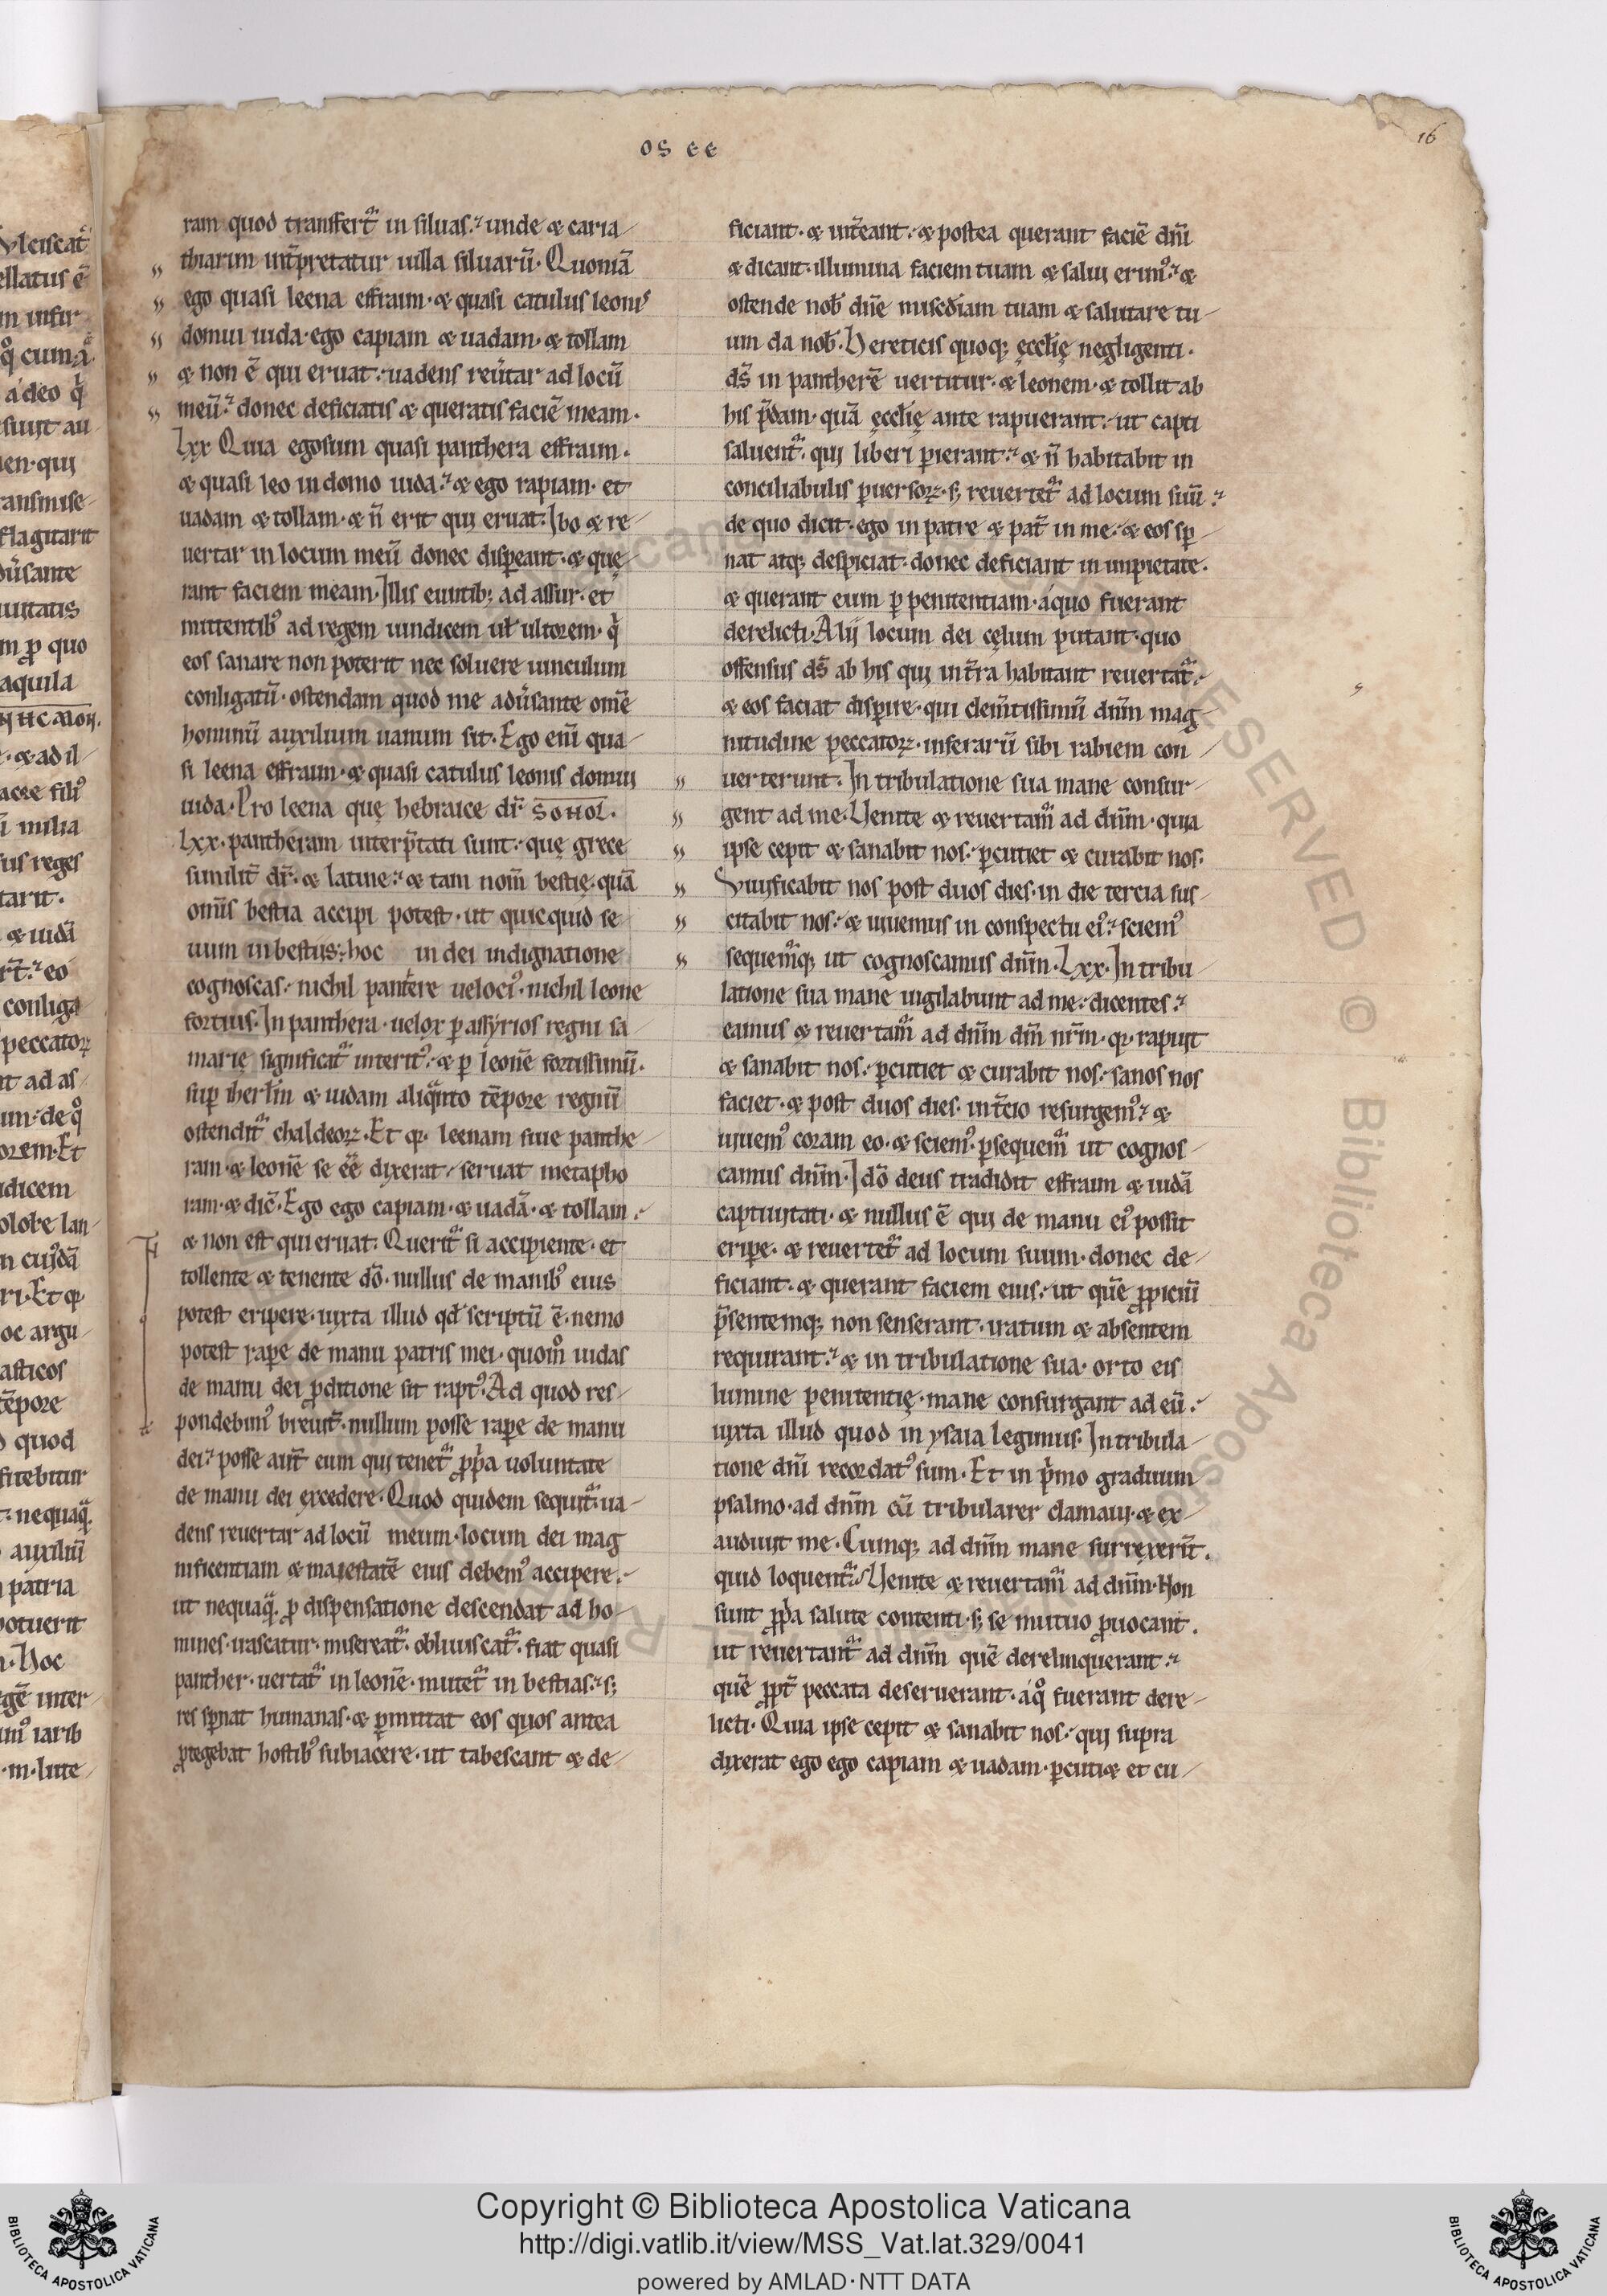 OS EE
16
ram quod transfert᷑ in siluas. unde & caria
thiarim int̃pretatur uilla siluarũ. Quoniã
ego quasi leena effraim. & quasi catulus leonis
domui iuda. ego capiam & uadam. & tollam
& non ẽ qui eruat. uadens reũtar ad locũ
meũ. donec deficiatis & queratis faciẽ meam.
Lxx Quia egosum quasi panthera effraim.
& quasi leo in domo iuda. & ego rapiam. et
uadam & tollam. & ñ erit qui eruat. Ibo & re
uertar in locum meũ donec dispeant. & quę
rant faciem meam. Illis euntib; ad assur. et
mittentib᷒ ad regem uindicem uł ultorem. q̇
eos sanare non poterit nec soluere uinculum
conligatũ. ostendam quod me adũsante omẽ
hominũ auxilium uanum sit. Ego eni᷑ qua
si leena effraim. & quasi catulus leonis domui
iuda. Pro leena quę hebraice dr̃ SOHOL.
Lxx. pantheram interp̃tati sunt. quę grece
similit̃ dr̃. & latine. & tam nom̃ bestię. quã
omĩs bestia accipi potest. ut quicquid se
uum in bestijs. hoc in dei indignatione
cognoscas. nichil pantere ueloci᷒. nichil leone
fortius. In panthera. uelox p assyrios regni sa
marię significat᷑ interit᷒. & p leonẽ fortissimũ.
sup iherłm & iudam aliq̃nto tẽpore regnũ
ostendit᷑ chaldeoꝝ. Et qꝛ leenam siue panthe
ram. & leonẽ se eẽ dixerat. seruat metapho
ram. & dic̃. Ego ego capiam. & uadã. & tollam.
& non est qui eruat. Querit᷑ si accipiente. et
tollente & tenente dõ. nullus de manib᷒ eius
potest eripere. iuxta illud qđ scriptũ ẽ. nemo
potest rape de manu patris mei. quom̊ iudas
de manu dei pditione sit rapt᷒. Ad quod res
pondebim᷒ breuit̃. nullum posse rape de manu
dei. posse aut̃ eum qui tenet᷑ ꝓpa uoluntate
de manu dei excedere. Quod quidem sequit᷑. ua
dens reuertar ad locũ meum. locum dei mag
nificentiam & maiestatẽ eius debem᷒ accipere.
ut nequaq̃. ꝓ dispensatione descendat ad ho
mines. irascatur. misereat᷑. obliuiscat᷑. fiat quasi
panther. uertat᷑ in leonẽ. mutet᷑ in bestias. s;
res spnat humanas. & pmittat eos quos antea
ꝓtegebat hostib᷒ subiacere. ut tabescant & de
ficiant. & int̃eant. & postea querant faciẽ dñi
& dicant. illumina faciem tuam & salui erim᷒. &
ostende nob̃ dñe misc̃diam tuam & salutare tu
um da nob̃. Hereticis quoq; ęccłię negligenti.
ds̃ in pantherẽ uertitur. & leonem. & tollit ab
his p̃dam. quã ęccłię ante rapuerant. ut capti
saluent᷑. qui liberi pierant. & ñ habitabit in
conciliabulis puersoꝝ. s; reuertet᷑ ad locum suũ.
de quo dicit. ego in patre & pat̃ in me. & eos sp
nat atq; despiciat. donec deficiant in impietate.
& querant eum p penitentiam. áquo fuerant
derelicti. Alij locum dei cęlum putant. quo
offensus ds̃ ab his qui int̃ra habitant reuertat᷑.
& eos faciat dispire. qui clem̃tissimũ dñm mag
nitudine peccatoꝝ. inferarũ sibi rabiem con
uerterunt. In tribulatione sua mane consur
gent ad me. Venite & reuertam᷑ ad dñm. quia
ipse cepit & sanabit nos. pcutiet & curabit nos.
Viuificabit nos post duos dies. in die tercia sus
citabit nos. & uiuemus in conspectu ei᷒. sciem᷒
sequem᷑q; ut cognoscamus dñm. Lxx. In tribu
latione sua mane uigilabunt ad me. dicentes.
eamus & reuertam᷑ ad dñm dñ̃m nr̃m. qꝛ. rapuit
& sanabit nos. pcutiet & curabit nos. sanos nos
faciet. & post duos dies. int̃cio resurgem᷒. &
uiuem᷒ coram eo. & sciem᷒. psequem᷑ ut cognos
camus dñm. Idõ deus tradidit effraim & iudã
captiuitati. & nullus ẽ qui de manu ei᷒ possit
eripe. & reuertet᷑ ad locum suum. donec de
ficiant. & querant faciem eius. ut quẽ ꝓpiciũ
p̃sentemq; non senserant. iratum & absentem
requirant. & in tribulatione sua. orto eis
lumine penitentię. mane consurgant ad eũ.
iuxta illud quod in ysaia legimus. In tribula
tione dñi recordat᷒ sum. Et in p̃mo graduum
psalmo. ad dñm cũ tribularer clamaui. & ex
audiuit me. Cumq; ad dñm mane surrexerĩt.
quid loquent᷑. Venite & reuertam᷑ ad dñm. Non
sunt ꝓpa salute contenti. s; se mutuo ꝓuocant.
ut reuertant᷑ ad dñm quẽ derelinquerant.
quẽ ꝓpt̃ peccata deseruerant. áq̊ fuerant dere
licti. Quia ipse cepit & sanabit nos. qui supra
dixerat ego ego capiam & uadam. pcuti& et cu
Copyright © Biblioteca Apostolica Vaticana
http://digi.vatlib.it/view/MSS_Vat.lat.329/0041
powered by AMLAD·NTT DATA
BIBLIOTECA APOSTOLICA VATICANA
BIBLIOTECA APOSTOLICA VATICANA